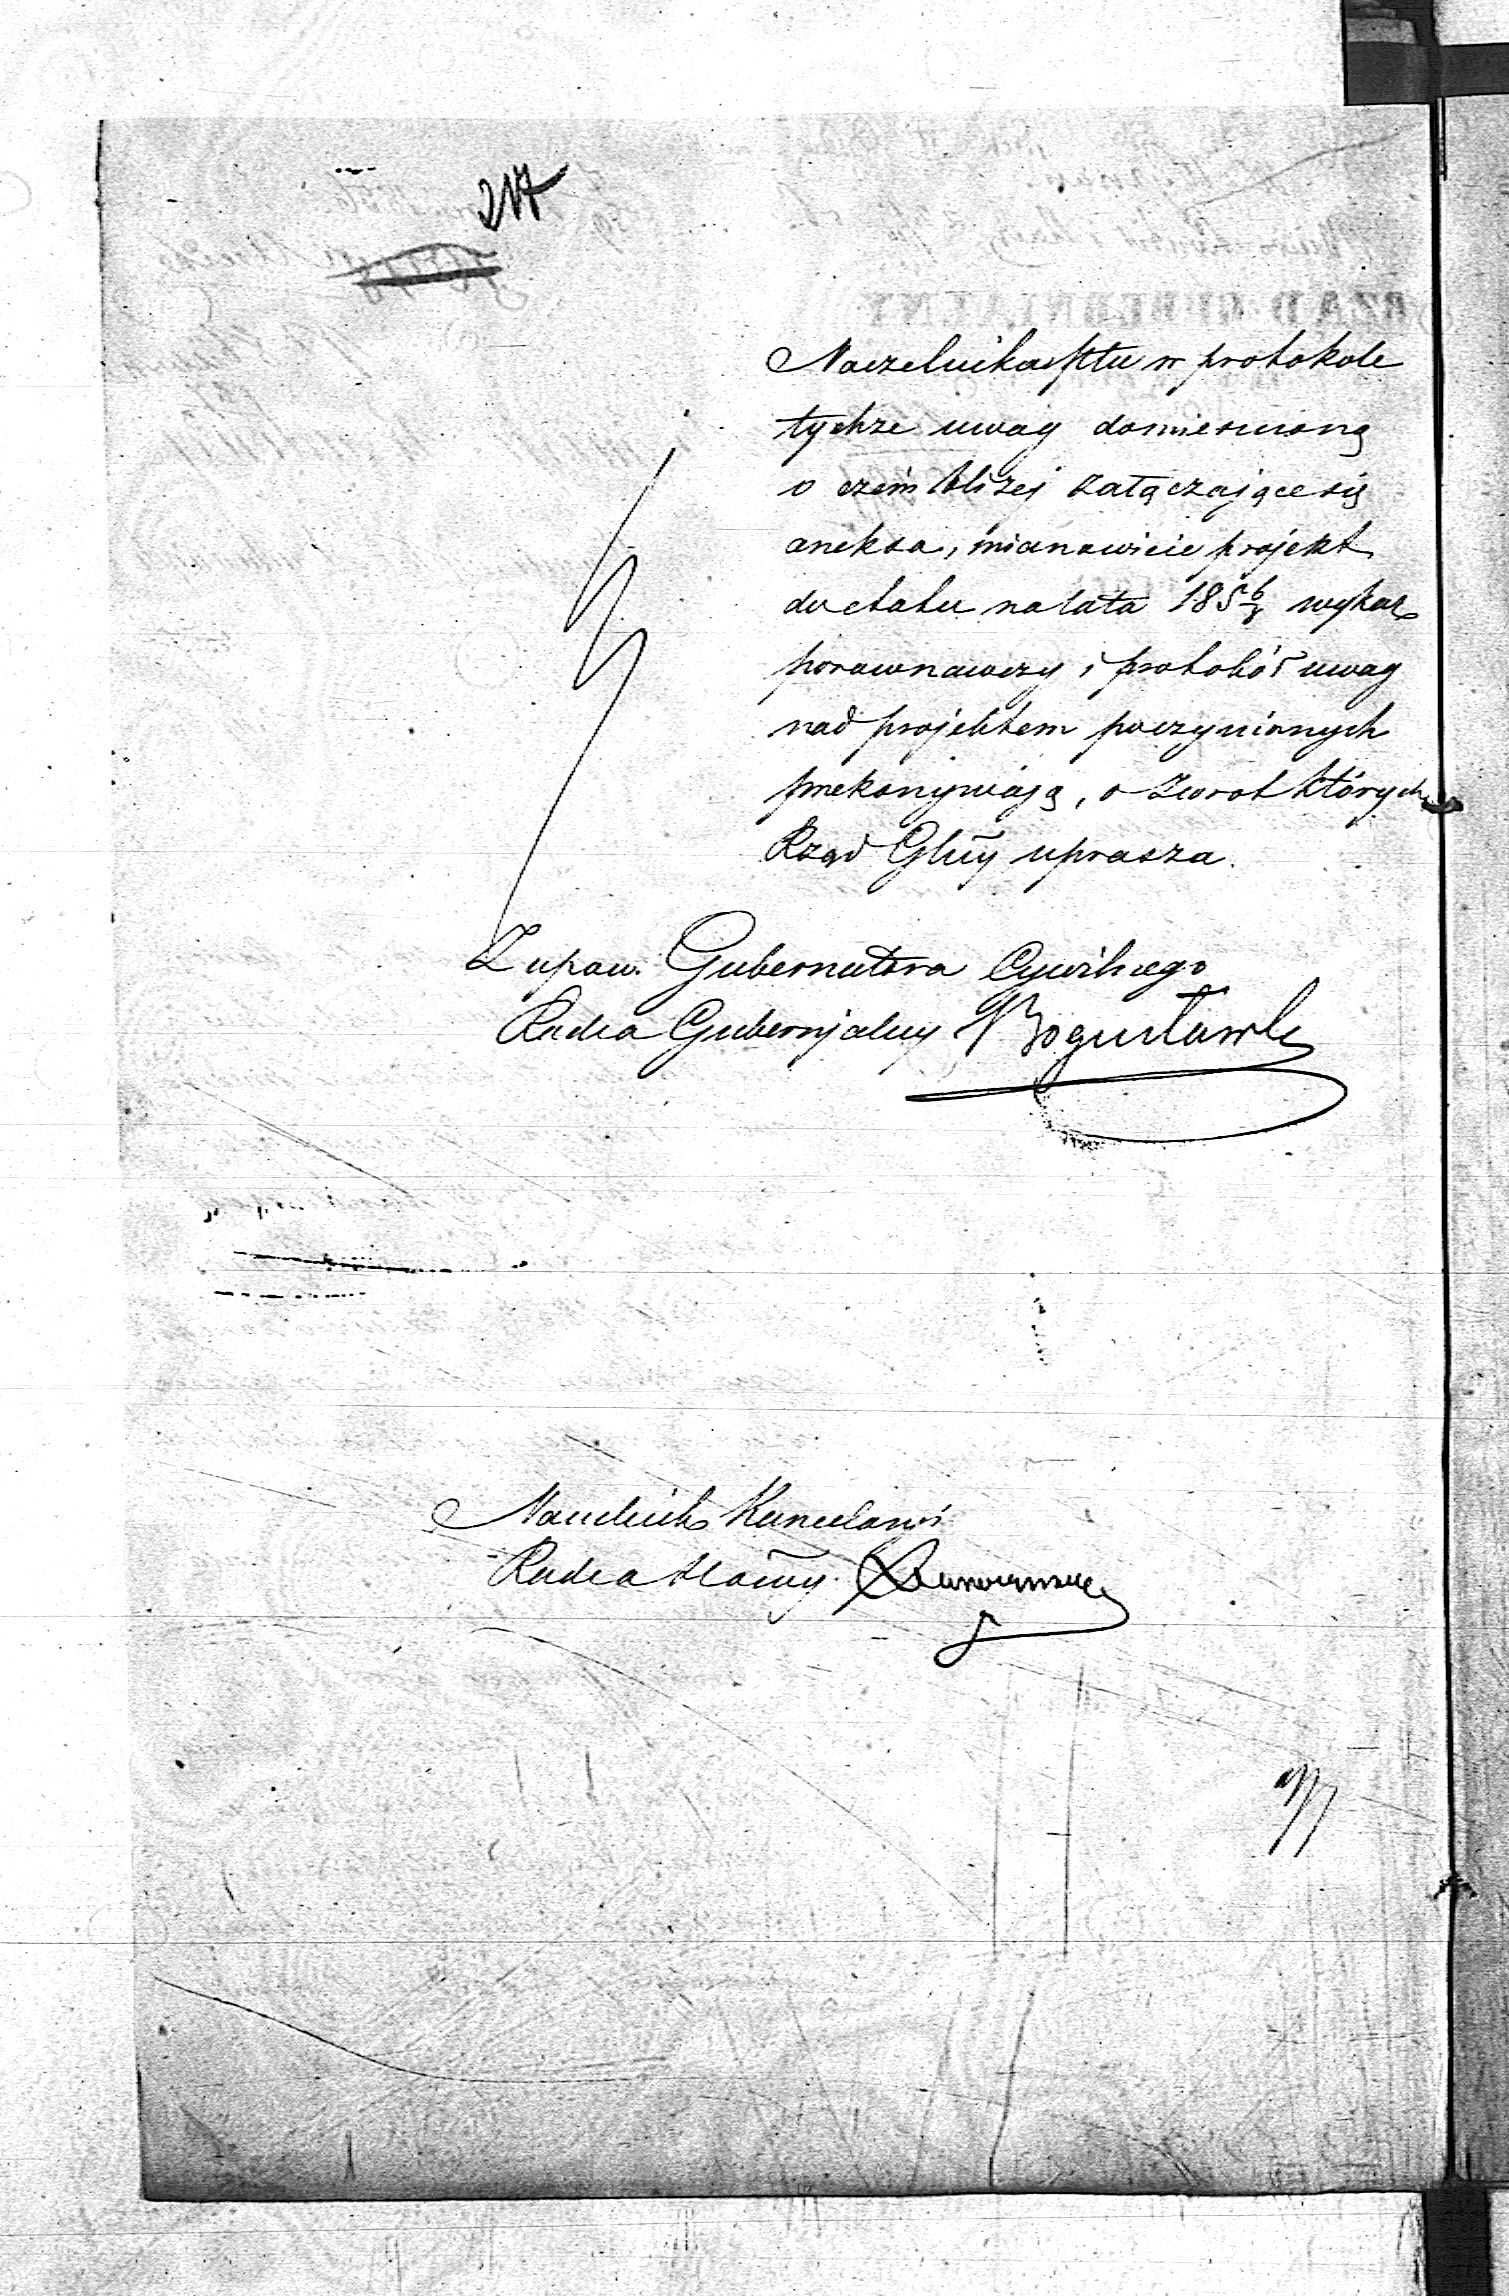 217
Naczelnika Pttu w protokole
tychże uwag domieszczoną
o czém bliżej załączające się
aneksa, mianowicie projekt
do etatu na lata 185 6/8 wykaz
porównawczy i protokół uwag
nad projektem poczynionych
przekonywają, o zwrot których
Rząd Glny uprasza.
Z upow. Gubernatora Cywilnego
Radca Gubernjalny Bogusławsk
Naczelnik Kancelarii
Radca